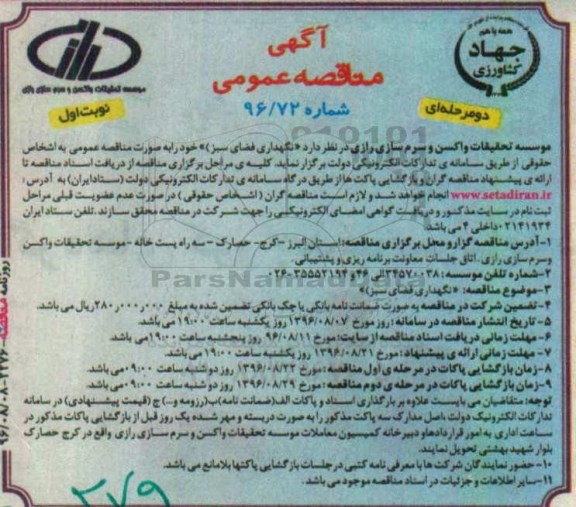 همه با هم
جهاد
کشاورزی
آگهی
مناقصه عمومی
شماره ۹۶/۷۲
موسسه تحقیقات واکسن و سرم سازی رازی
دومرحله‌ای
نوبت اول
موسسه تحقیقات واکسن و سرم سازی رازی در نظر دارد «نگهداری فضای سبز» خود را به صورت مناقصه عمومی به اشخاص
حقوقی از طریق سامانه ی تدارکات الکترونیکی دولت برگزار نماید. کلیه ی مراحل برگزاری مناقصه از دریافت اسناد مناقصه تا
ارائه ی پیشنهاد مناقصه گران و بازگشایی پاکت ها از طریق درگاه سامانه ی تدارکات الکترونیکی دولت (ستاد ایران) به آدرس:
www.setadiran.ir انجام خواهد شد و لازم است مناقصه گران (اشخاص حقوقی) در صورت عدم عضویت قبلی مراحل
ثبت نام در سایت مذکور و دریافت گواهی امضای الکترونیکی را جهت شرکت در مناقصه محقق سازند. تلفن ستاد ایران
۰۲۱۴۱۹۳۴ داخلی ۴ می باشد.
۱-آدرس مناقصه گزار و محل برگزاری مناقصه: استان البرز -کرج- حصارک - سه راه پست خانه - موسسه تحقیقات واکسن
وسرم سازی رازی. اتاق جلسات معاونت برنامه ریزی و پشتیبانی.
۲-شماره تلفن موسسه: ۳۴۵۷۰۰۳۸ الی ۴۶ و ۳۵۵۵۲۱۹۴-۰۲۶
۳-موضوع مناقصه: «نگهداری فضای سبز»
۴-تضمین شرکت در مناقصه به صورت ضمانت نامه بانکی یا چک بانکی تضمین شده به مبلغ ۲۸۰,۰۰۰,۰۰۰ ریال می باشد.
۵-تاریخ انتشار مناقصه در سامانه: روز مورخ ۱۳۹۶/۰۸/۰۷ روز یکشنبه ساعت ۱۹:۰۰ می باشد.
۶-مهلت زمانی دریافت اسناد مناقصه از سایت: مورخ ۹۶/۰۸/۱۱ روز پنجشنبه ساعت ۱۹:۰۰ می باشد.
۷-مهلت زمانی ارائه ی پیشنهاد: مورخ ۱۳۹۶/۰۸/۲۱ روز یکشنبه ساعت ۱۹:۰۰ می باشد.
۸-زمان بازگشایی پاکات در مرحله ی اول مناقصه: مورخ ۱۳۹۶/۰۸/۲۲ روز دوشنبه ساعت ۰۹:۰۰ می باشد.
۹-زمان بازگشایی پاکات در مرحله ی دوم مناقصه: مورخ ۱۳۹۶/۰۸/۲۹ روز دوشنبه ساعت ۰۹:۰۰ می باشد.
توجه: متقاضیان می بایست علاوه بر بارگذاری اسناد و پاکات الف(ضمانت نامه) ب(رزومه و..) ج (قیمت پیشنهادی) در سامانه
تدارکات الکترونیک دولت ،اصل مدارک سه پاکت مذکور را به صورت دربسته و مهر شده یک روز قبل از بازگشایی پاکات مذکور در
ساعت اداری به امور قراردادها و دبیرخانه کمیسیون معاملات موسسه تحقیقات واکسن و سرم سازی رازی واقع در کرج حصارک
بلوار شهید بهشتی تحویل نمایند.
۱۰-حضور نمایندگان شرکت ها با معرفی نامه کتبی در جلسات بازگشایی پاکتها بلامانع می باشد.
۱۱-سایر اطلاعات و جزئیات در اسناد مناقصه موجود می باشد.
ParsNamadData
۲۷۹